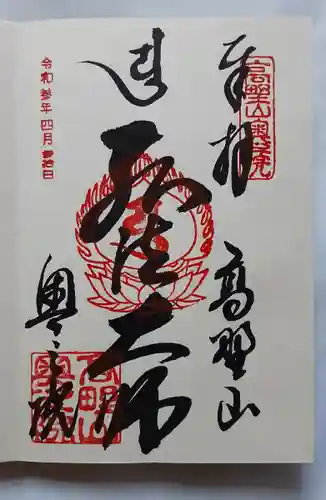 奉拝
高野山奥之院
高野山
弘法大師
奥之院
高野山
奥之院
令和参年四月日